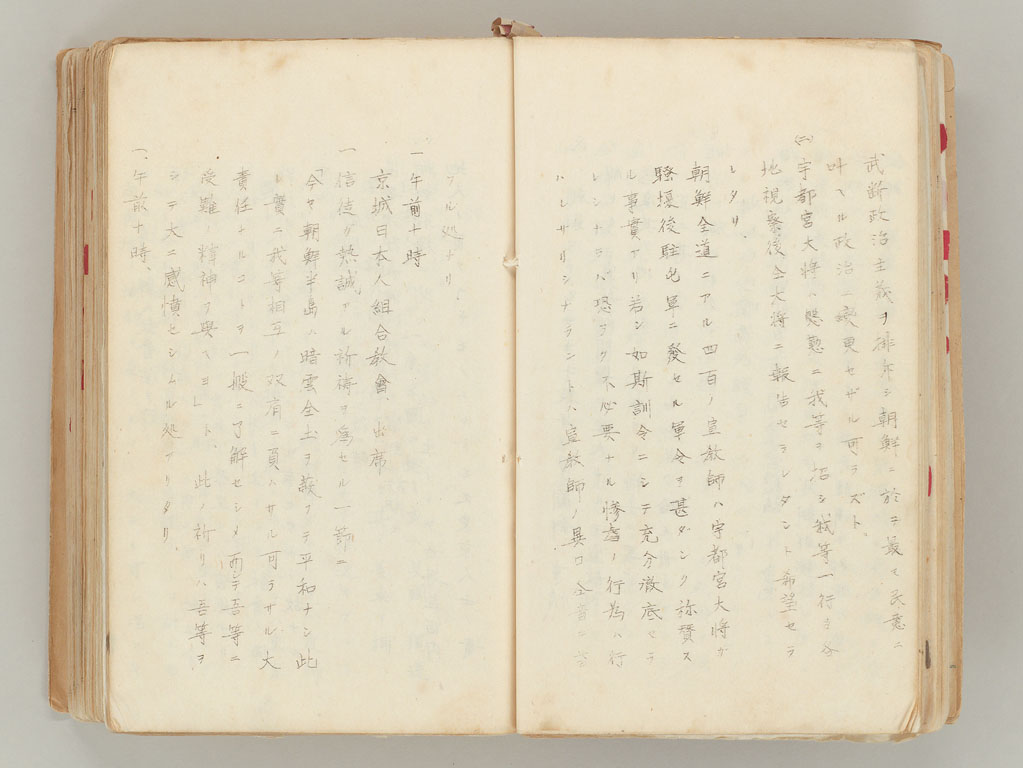 武断政治主義ヲ排斥シ朝鮮ニ於テ最モ民意ニ
叶ヘル政治ニ変更セザル可ラズト、
(二)宇都宮大将ハ懇懃ニ我等ヲ招シ我等一行
地視察後仝大将ニ報告セラレタシト希望セラ
レタリ、
朝鮮全道ニアル四百ノ宣教師ハ宇都宮大将ガ
騒擾後駐屯軍ニ発セル軍令ヲ甚ダシク称賛ス
ル事實アリ若シ如斯訓令ニシテ充分徹底セラ
レシナラバ恐ラク不必要ナル惨虐ノ行為ハ行
ハレザリシナラントハ宣教師ノ異口仝音ニ
アル処ナリ
一午前十時
京城日本人組合教會、出席
一信徒ガ熱誠アル祈祷ヲ為セル一節ニ
「今ヤ朝鮮半島ハ暗雲全土ヲ蔽フテ平和ナシ此
レ實ニ我等相互ノ双肩ニ負ハサル可ラサル大
責任ナルコトヲ一般ニ了解セシメ而テ吾等ニ
受難ノ精神ヲ與ヘヨ」ト、此ノ祈リハ吾等ヲ
シテ大ニ感憤セシムル処アリタリ、
一、午前十時、